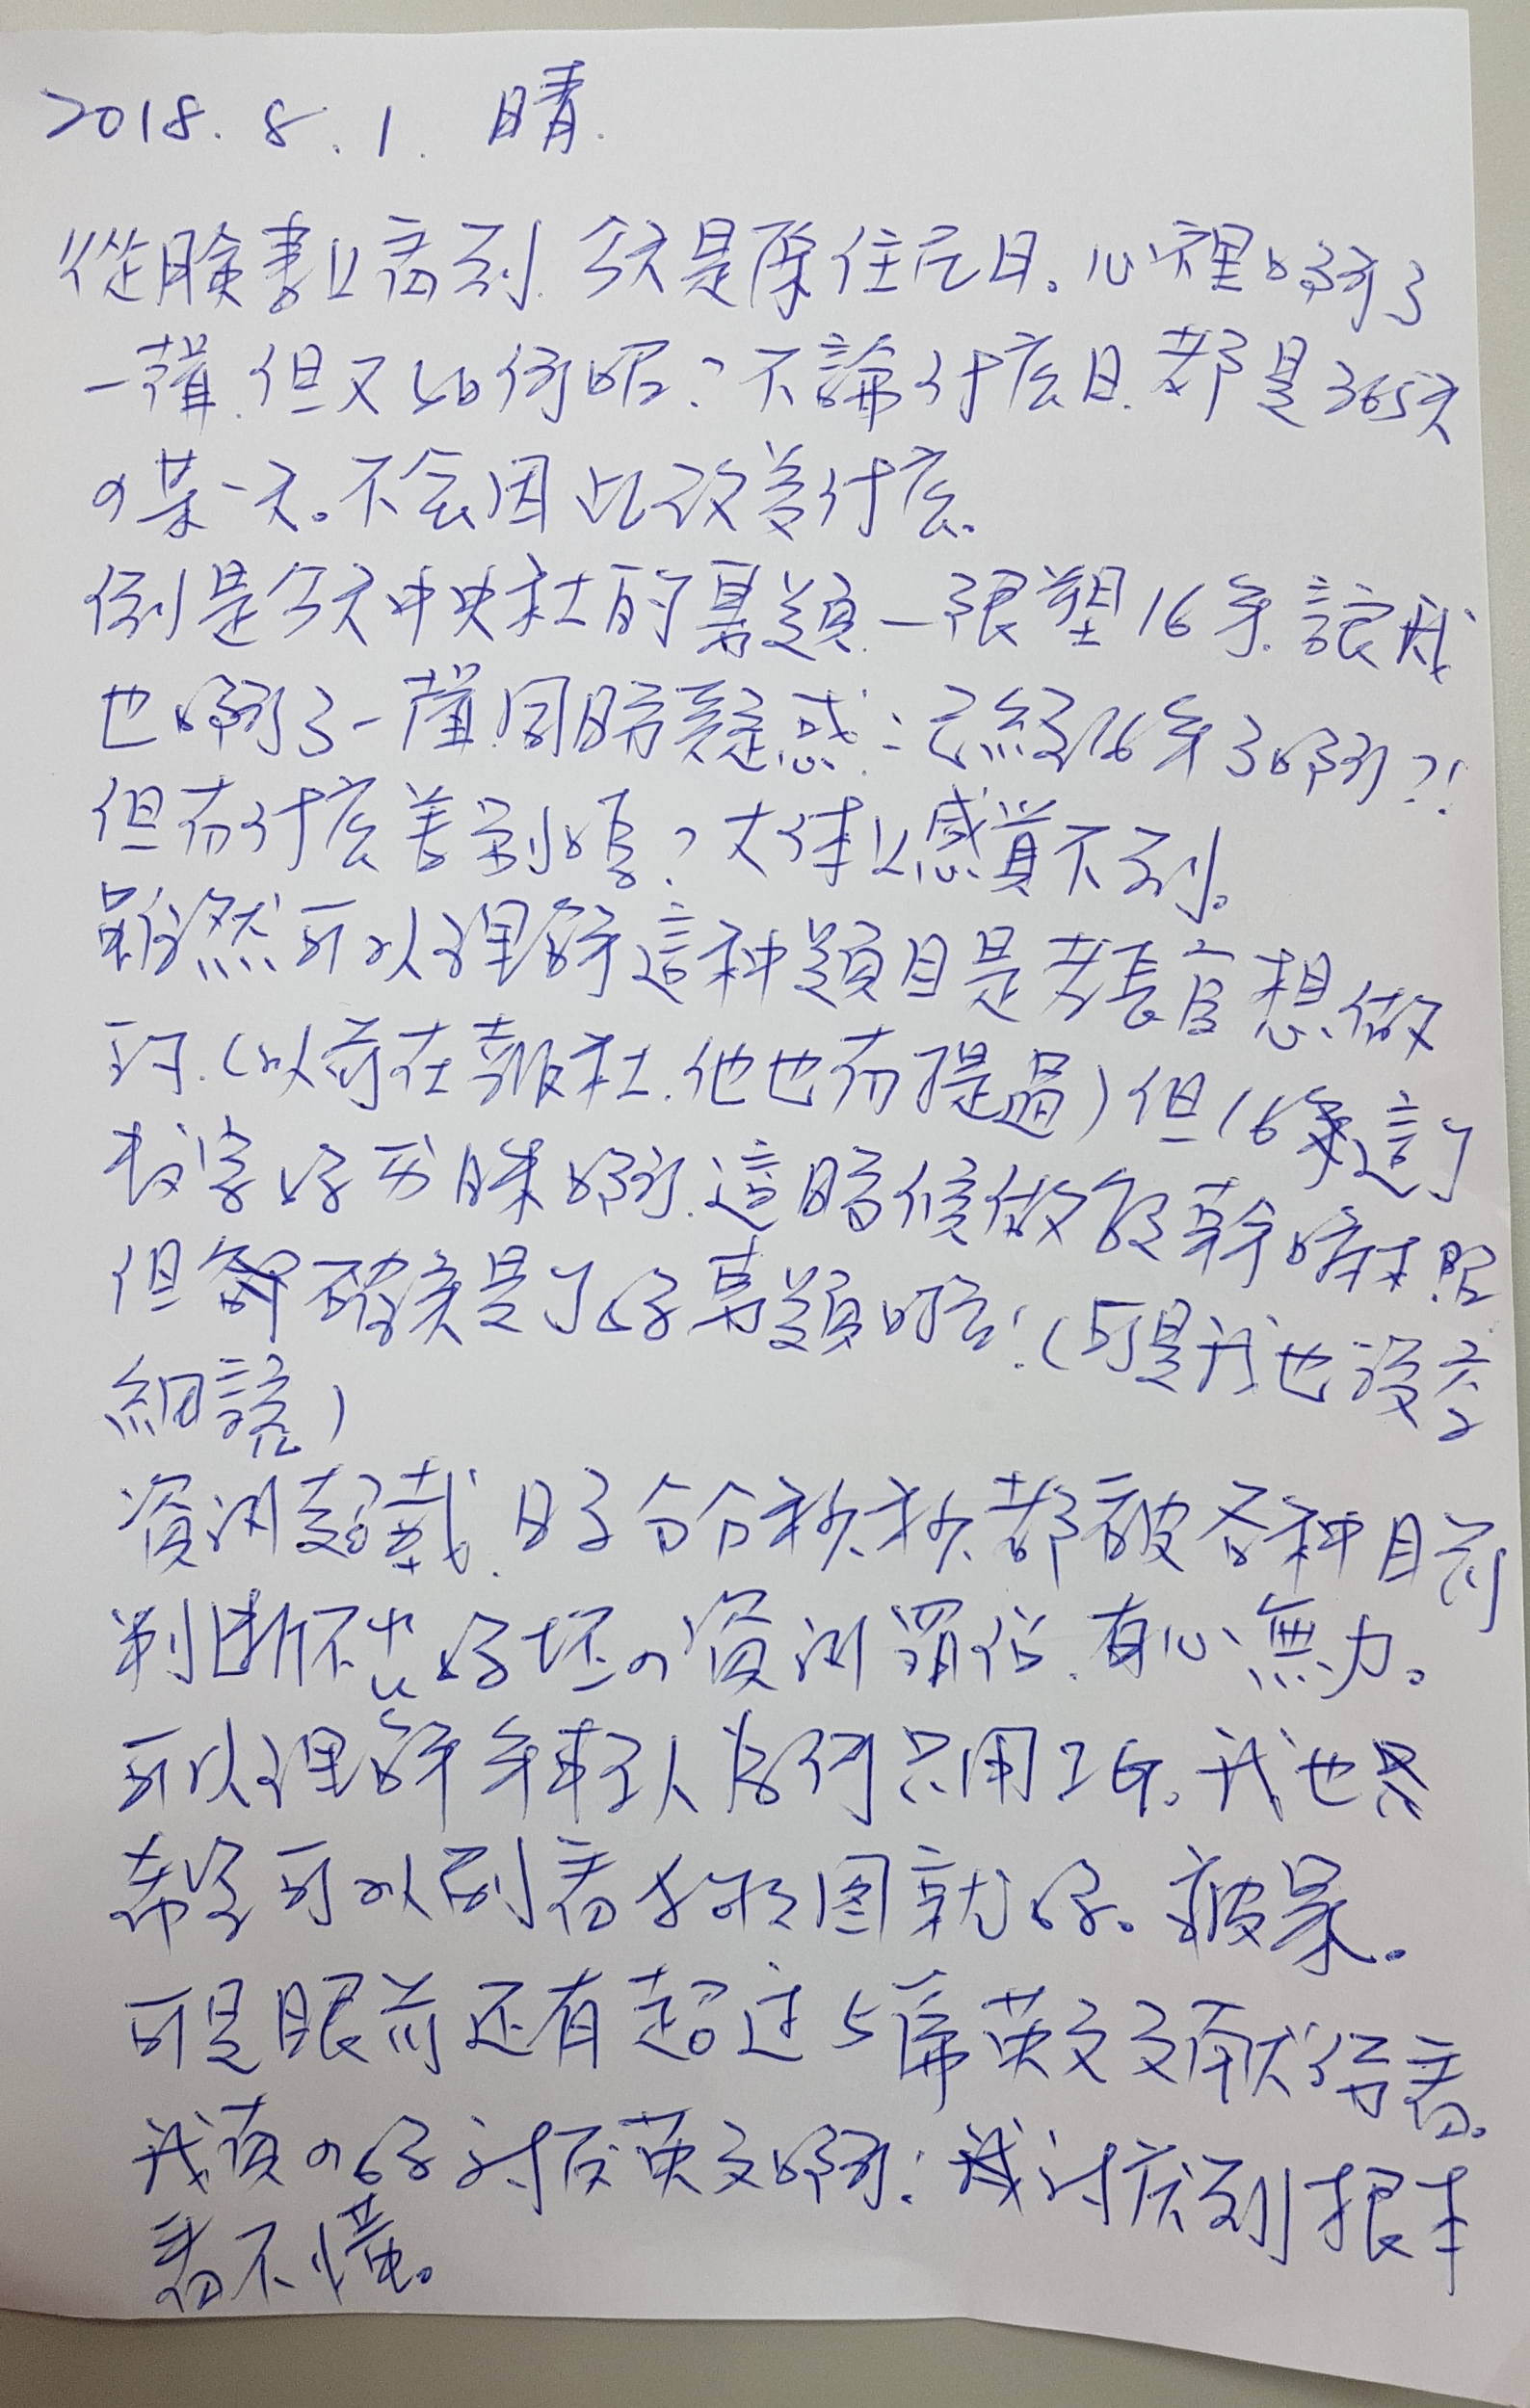 2018.8.1. 晴.
從臉書上看到.今天是原住民日。心裡啊了
一聲.但又如何呢?不論什麼日.都是365天
の某一天。不会因此改善什麼。
倒是今天中央社的專題—限塑16年.讓我
也啊了一聲.同時疑惑:已經16年了啊?!
但有什麼差別嗎?大体上感覺不到。
雖然可以理解這種題目是老長官想做
的.(以前在報社.他也有提過)但16年這个
数字好可月未啊.這時候做能幹嘛呢
但確実是个好專題啦!(可是我也沒去
細読)
資訊超載.日子分分秒秒都被各種目前
判断不出好坏の資訊罩住.有心無力。
可以理解年輕人為何只用IG。我也只
希望可以到看圖就好。疲累。
可是眼前还有超过5篇英文文献待看。
我真の好討厌英文啊:我討厌到根本
看不懂。